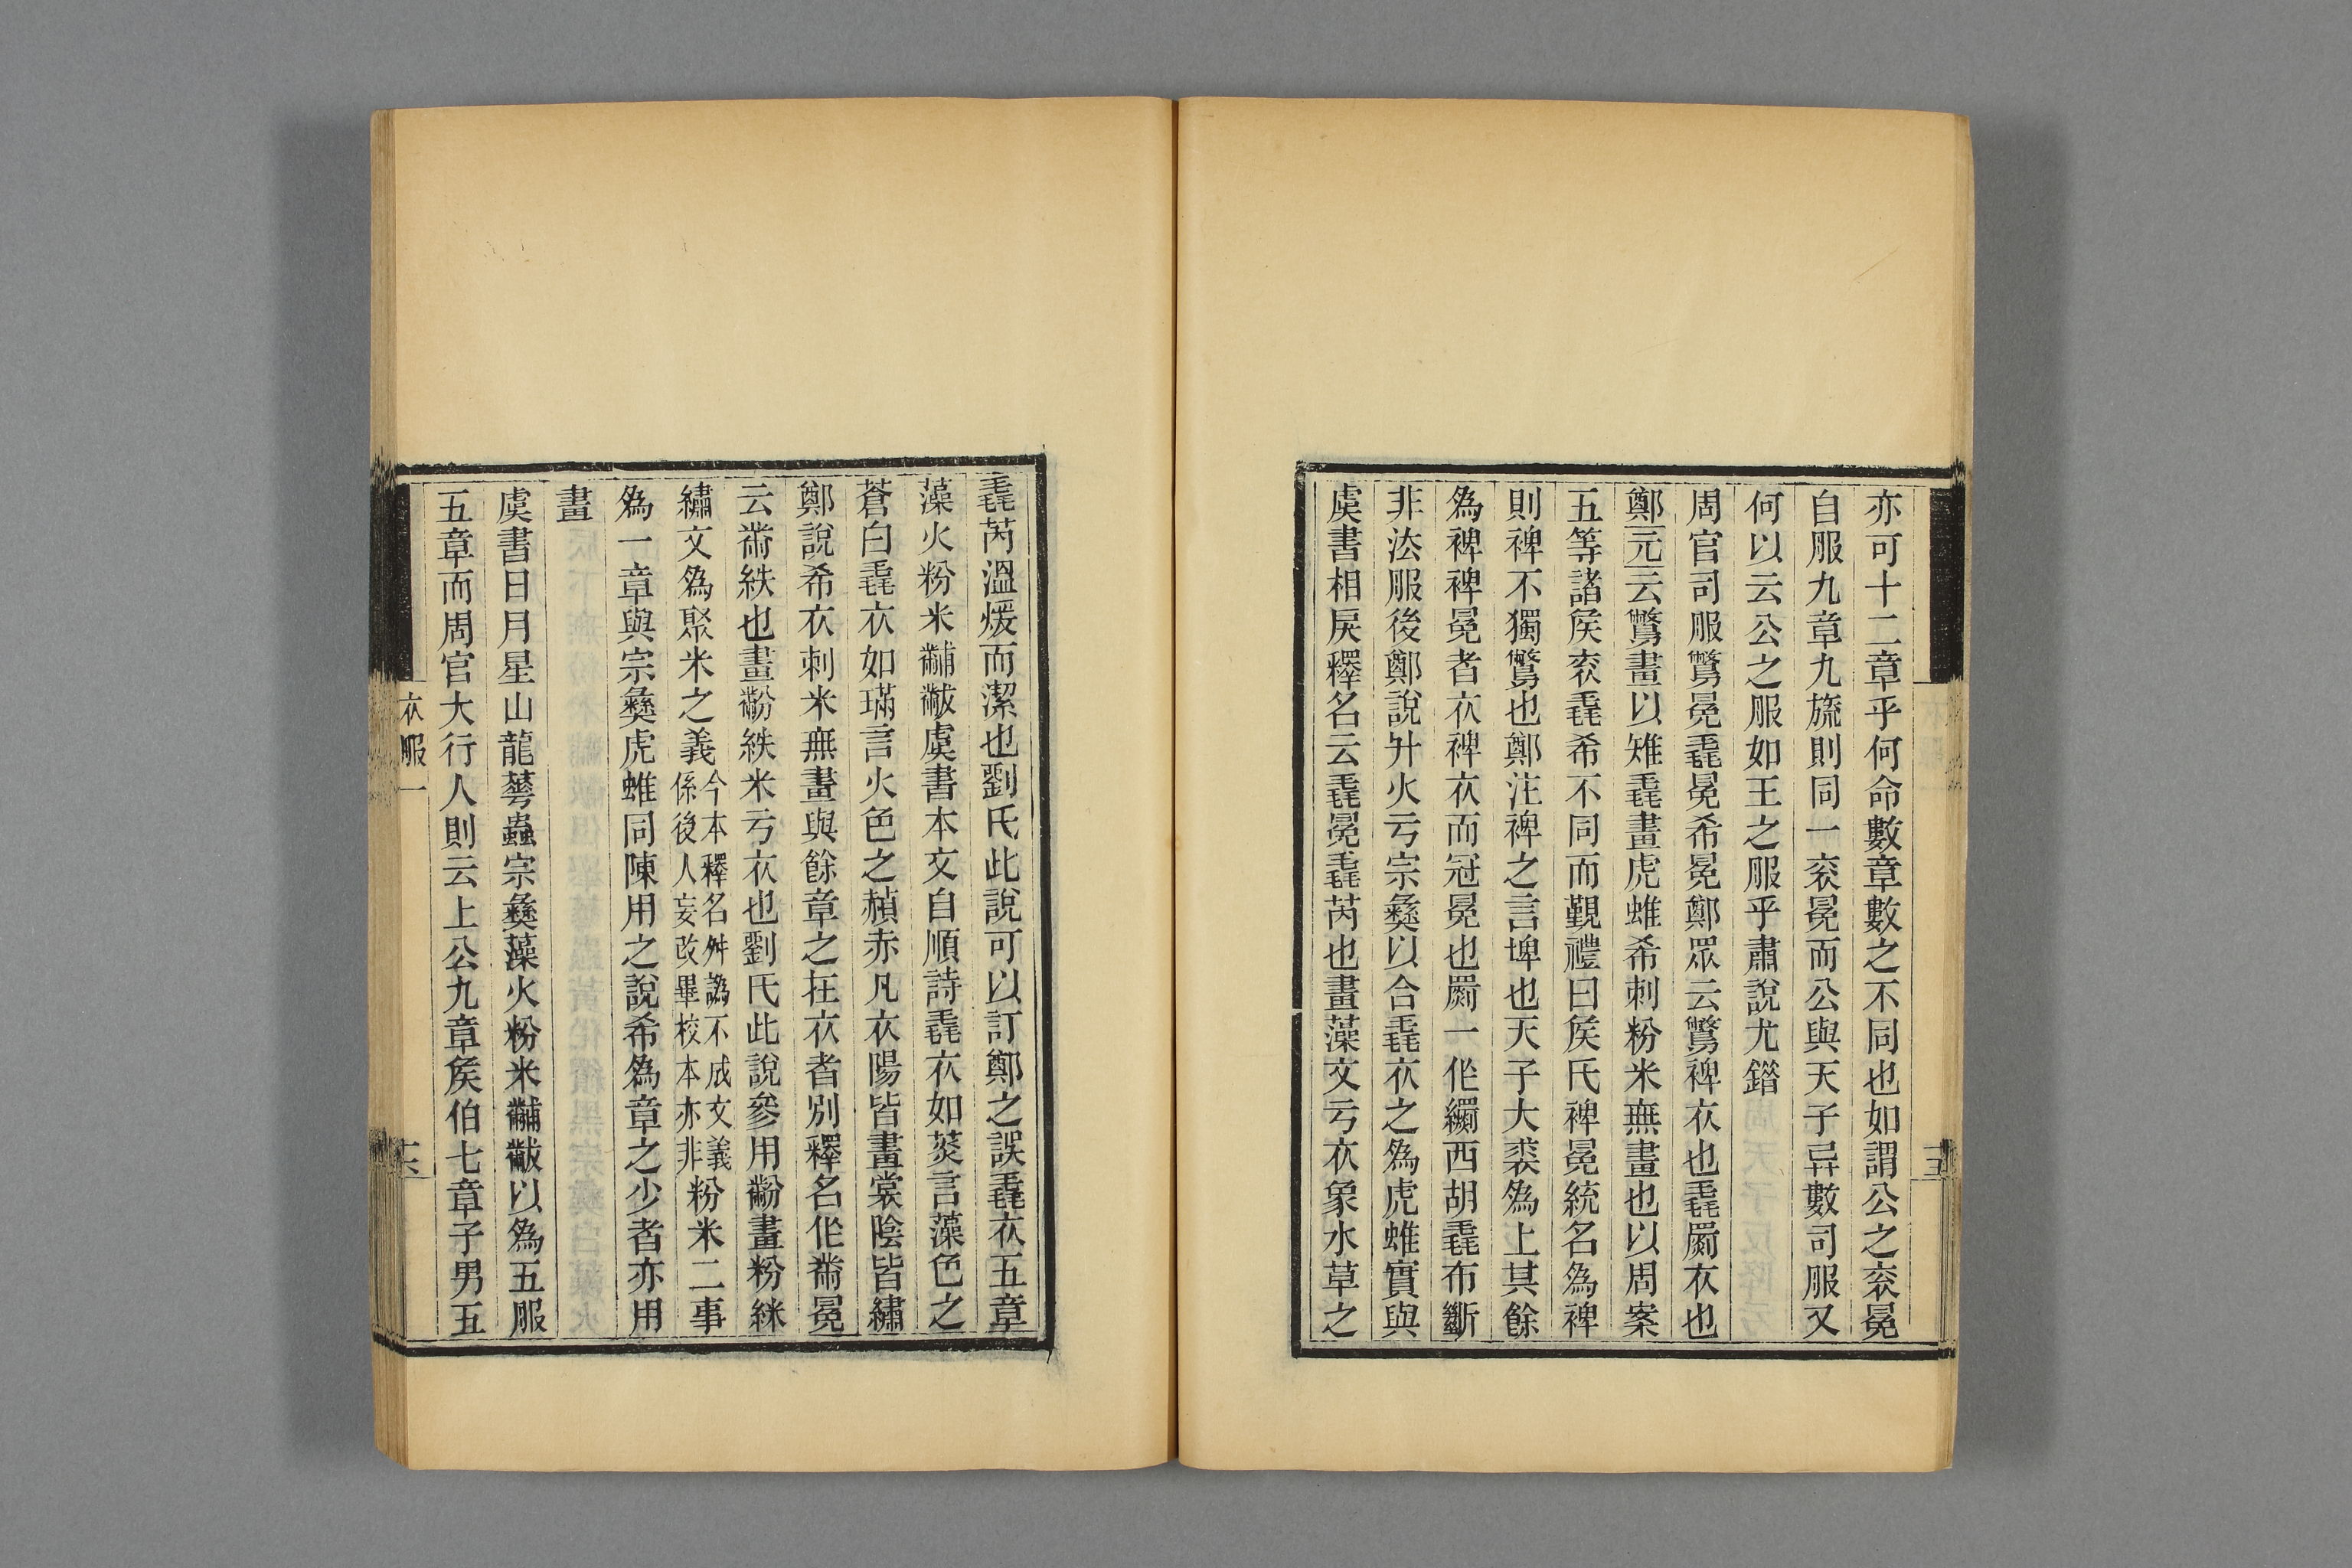 亦可十二章乎何命數章數之不同也如謂公之衮冕
自服九章九旒則同一衮冕而公與天子異數司服又
何以云公之服如王之服乎肅說尤錯
周官司服鷩冕毳冕希冕鄭眾云鷩裨衣也毳罽衣也
鄭元云鷩畫以雉毳畫虎蜼希刺粉米無畫也以周案
五等諸矦衮毳希不同而覲禮曰矦氏裨冕統名為裨
則裨不獨鷩也鄭注裨之言埤也天子大裘為上其餘
為裨裨冕者衣裨衣而冠冕也罽一作繝西胡毳布斷
非法服後鄭說升火亏宗彝以合毳衣之為虎蜼實與
虞書相戾釋名云毳冕毳芮也畫藻文亏衣象水草之
毳芮溫煖而潔也劉氏此說可以訂鄭之誤毳衣五章
藻火粉米黼黻虞書本文自順詩毳衣如菼言藻色之
蒼白毳衣如璊言火色之赬赤凡衣陽皆畫裳陰皆繡
鄭說希衣刺米無畫與餘章之在衣者別釋名作黹冕
云黹紩也畫黺紩米亏衣也劉氏此說參用黺畫粉絲
繡文為聚米之義今本釋名舛譌不成文義係後人妄改畢校本亦非粉米二事
為一章與宗彝虎蜼同陳用之說希為章之少者亦用
畫
虞書日月星山龍蕚蟲宗彝藻火粉米黼黻以為五服
五章而周官大行人則云上公九章矦伯七章子男五
衣服一